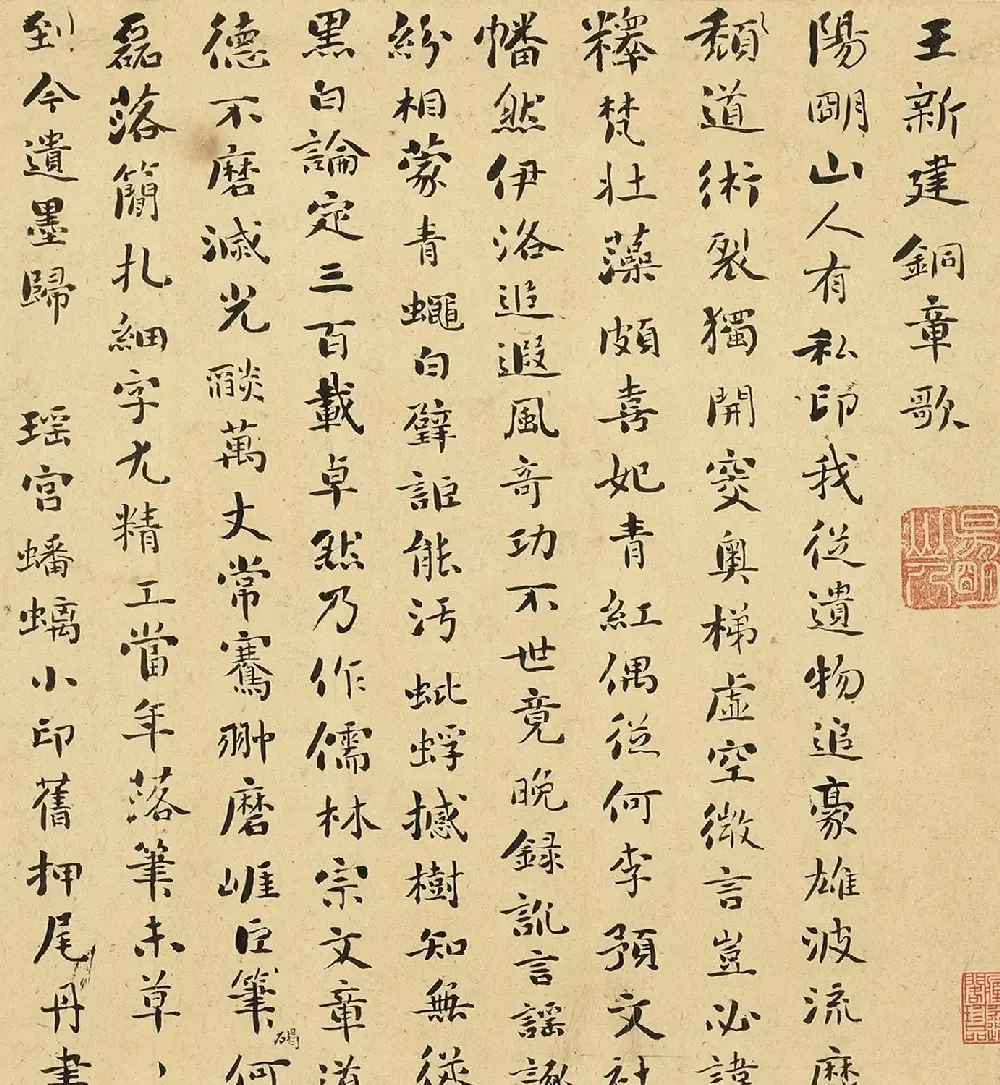 王新建銅章歌
陽朙山人有私印我從遺物追豪雄波流靡
頹道術裂獨開窔奧梯虛空微言豈必諱
釋梵壯藻頗喜妃青紅偶從何李預文社
幡然伊洛追遐風奇功不世竟晚錄訛言謠諑
紛相蒙青蠅白璧詎能污蚍蜉撼樹知無從
黑白論定三百載卓然乃作儒林宗文章道
德不磨滅光燄萬丈常騫翀磨崕巨筆何
碣
磊落簡札細字尤精工當年落筆未草
到今遺墨歸 瑶宮蟠螭小印舊押尾丹書